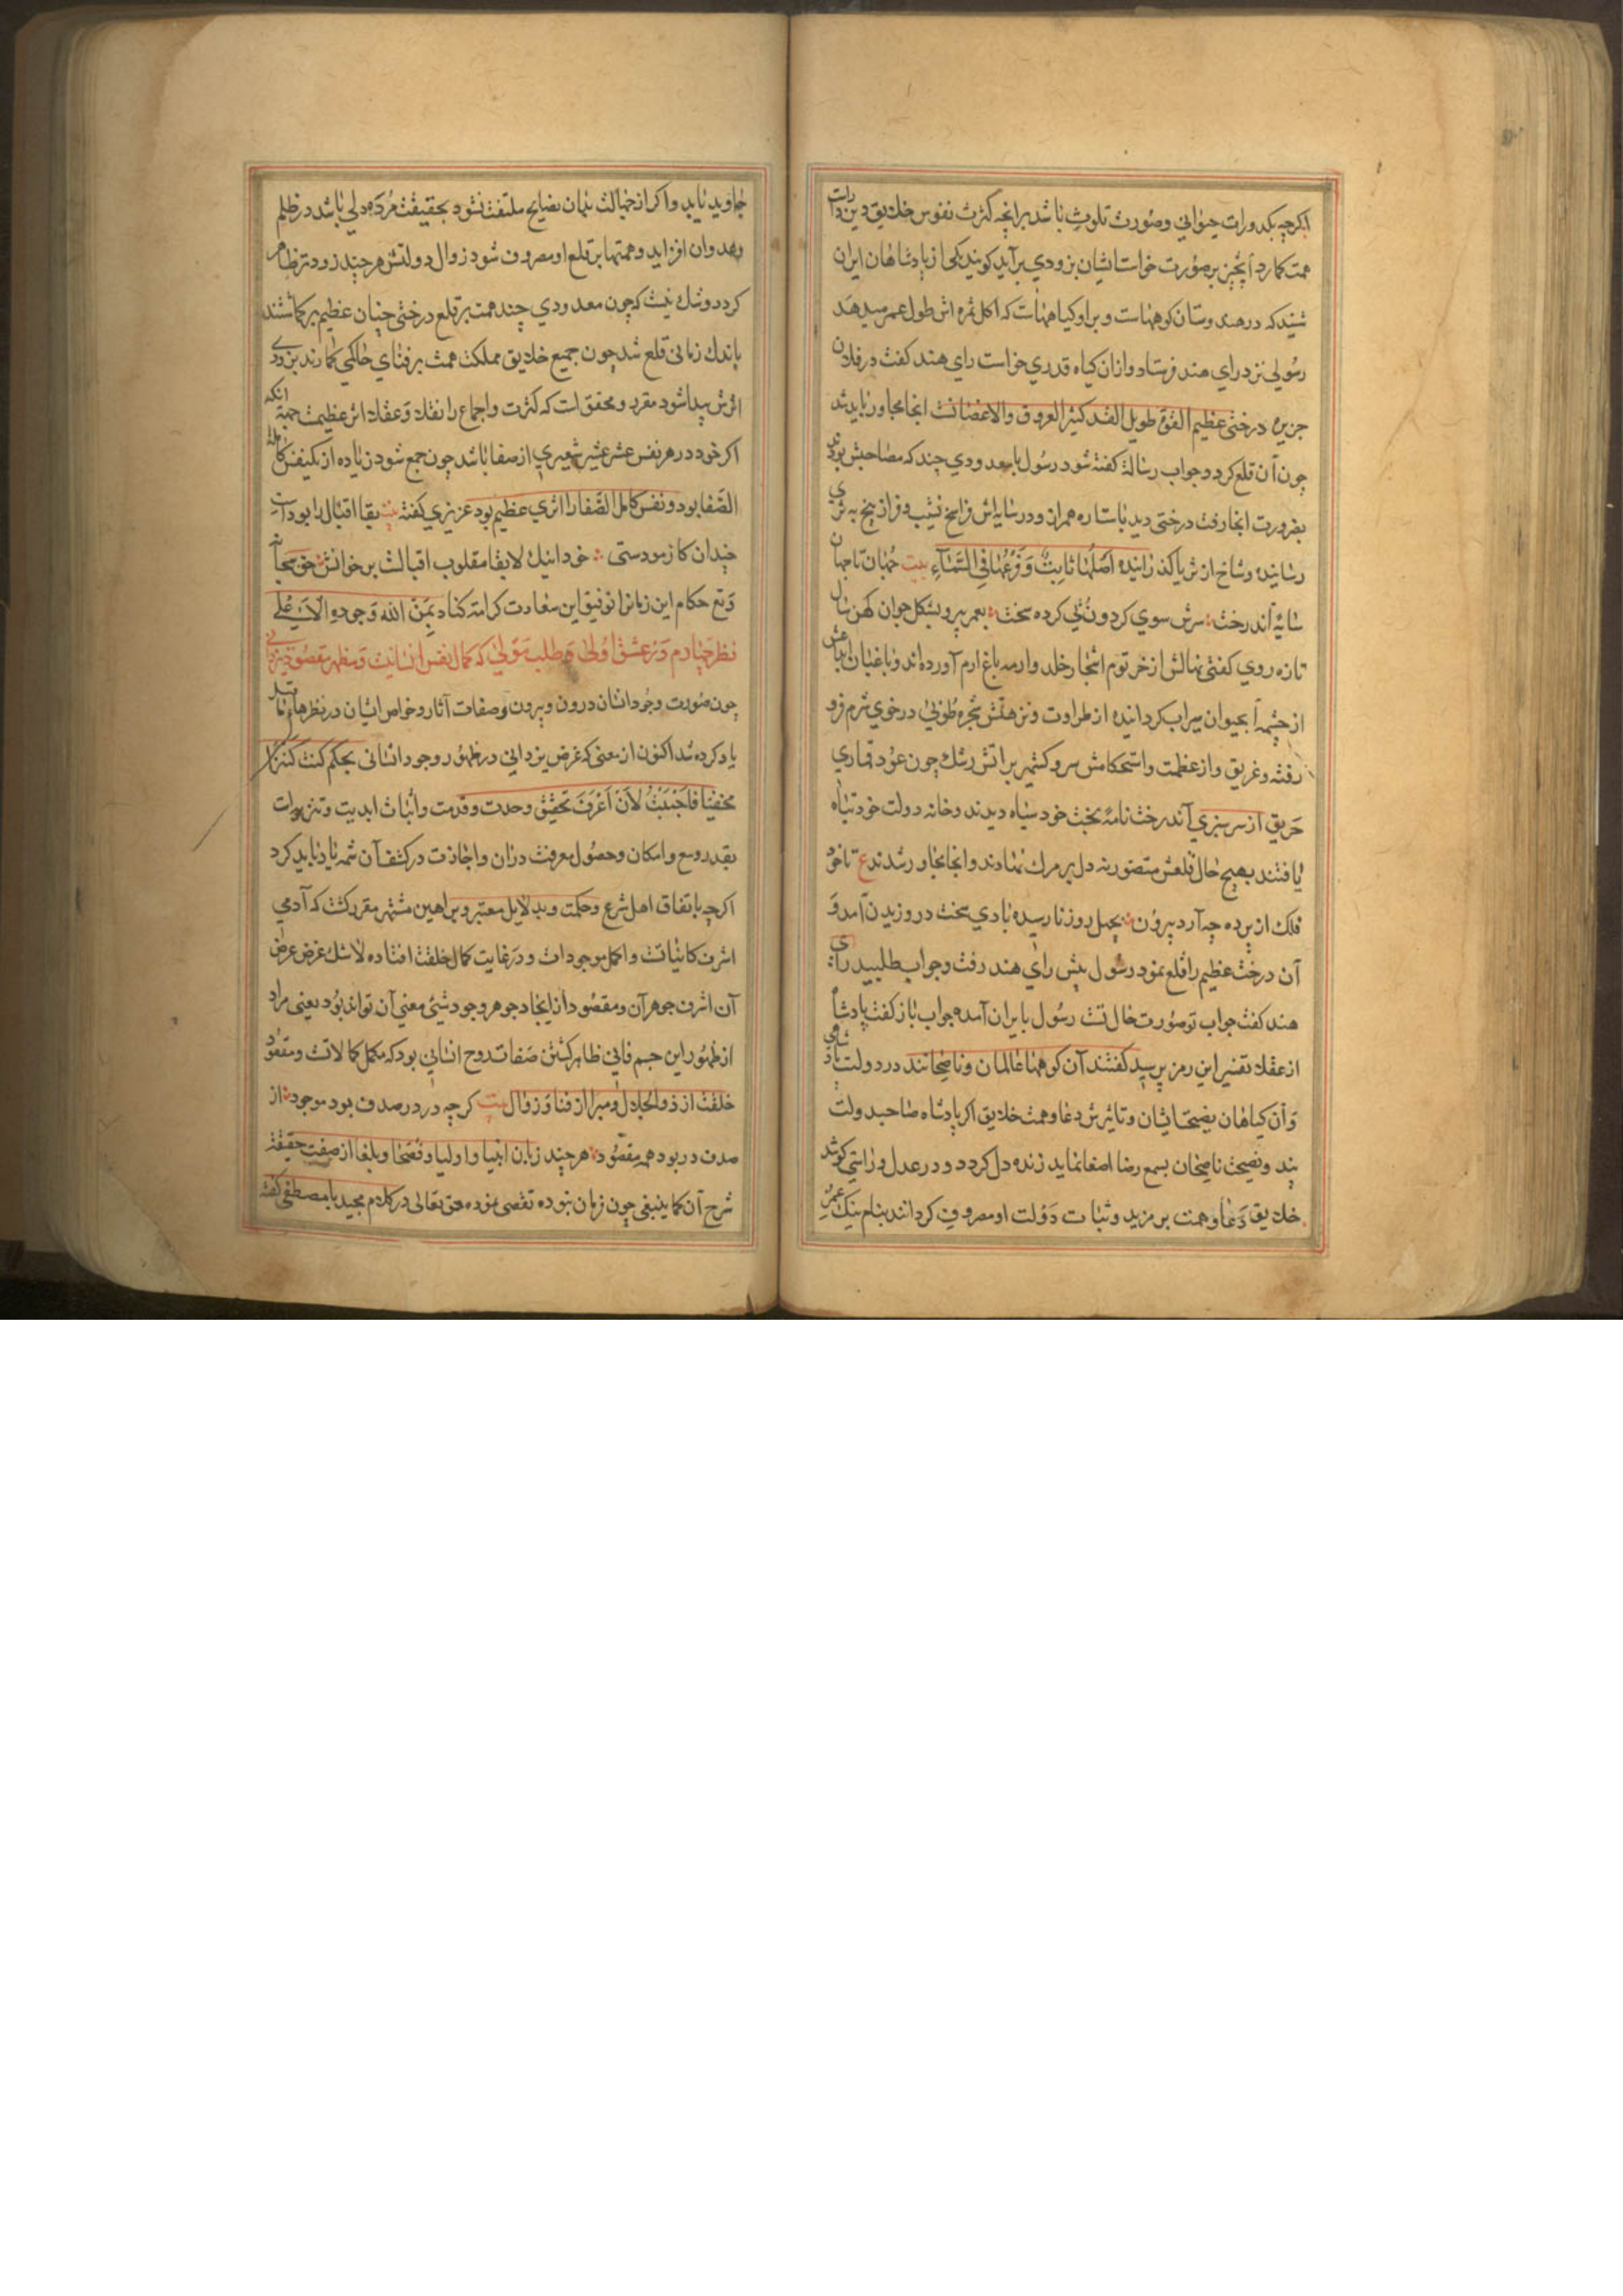 اکرچه بکدورات حیوانی وصورت تلوث باشد برانچه کثرت نفوس خلایق دین
همت کمارد آنچیز بر صورت خواست ایشان بزودی برآید کویند یکی از پادشاهان ایران
شنید که در هندوستان کوههاست و براو کیاههاست که اکل ثمره اش طول عمر میدهد
رسولی نزد رای هند فرستاد و ازان کیاه قدری خواست رای هند کفت در فلان
جزیره درختی عظیم القوة طویل القد کثیر العروق والاغصانست انجا مجاور باید شد
چون آن قلع کردد جواب رسالة کفته شود رسول با معدودی چند که مصاحبش بودند
بضرورت انجا رفت درختی دید با ستاره همران و در سایه اش فراسخ نشیب و فراز بیخ به ثری
رسانیده و شاخ از ثریا کذرانیده اصلها ثابت وفرعها فی السماء بیت جهان تا جهان
سایه آندرخت سرش سوی کردون تلی کرده سخت بعمر پیر و بشکل جوان کهن سال
تازه روی کفتی نهالش از خرتوم اشجار خلد وارمه باغ ارم آورده اند و باغبان
از چشمه آبحیوان سیراب کردانیده از طراوت و نزهتش شجره طوبی در خوی شرم فرو
رفته و غریق و از عظمت و استحکامش سرو کشمیر بر آتش رشك چون عود قماری
حریق از سرسبزی آندرخت نامه بخت خود سیاه دیدند و خانه دولت خود تباه
یافتند بهیچ حال قلعش متصور نه دل بر مرك نهادند و انجا مجاور شدند ع تا خود
فلك از پرده چه آرد بیرون بچهل روز نارسیده بادی سخت در وزیدن آمد و
آن درخت عظیم را قلع نمود رسول پیش رای هند رفت و جواب طلبید رای
هند کفت جواب تو صورت حال تست رسول بایران آمده جواب باز کفت پادشاه
از عقلا تفسیر این رمز پرسید کفتند آن کوهها عالمان و ناصحانند در دولت پادشاهی
و آن کیاهان نصیحت ایشان و تاثیرش دعا و همت خلایق اکر پادشاه صاحبدولت
پند و نصیحت ناصحان بسمع رضا اصغا نماید زنده دل کردد و در عدل و راستی کوشد
خلایق دعا و همت بر مزید و ثبات دولت او مصروف کردانند بنام نیك عمر
جاوید یابد و اکر از جهالت بدان نصایح ملتفت نشود بحقیقت مرده دلی باشد در ظلم
وعدوان افزاید و همتها بر قلع او مصروف شود زوال دولتش هر چند زودتر ظاهر
کردد و شك نیست که چون معدودی چند همت بر قلع درختی چنان عظیم بر کماشتند
باندك زمانی قلع شد چون جمیع خلایق مملکت همت بر فنای حاکمی کمارند بزودی
اثرش پیدا شود مقرر و محقق است که کثرت و اجماع را نقلا و عقلا اثر عظیمست جهة انکه
اکر خود در هر نفس عشر عشیر شعیری از صفا باشد چون جمع شود زیاده از یکنفس کامل
الصفا بود و نفس کامل الصفا را اثری عظیم بود عزیزی کفته بیت بقا اقبال را بود است
چندان کازمودستی خود اینك لابقا مقلوب اقبالست بر خوانش حق
وتع حکام این زمانرا توفیق این سعادت کرامت کناد بمن الله وجوده الاعلی
نظر چهارم در عشق اولی و طلب مولی که کمال نفس انسانیت و مظهر مقصود یزدانی
چون صورت وجود انسان درون و بیرون و صفات آثار و خواص ایشان در نظرهاء
یاد کرده شد اکنون از معنی که غرض یزدانی در ظهور وجود انسانی بحکم کنت کنزا
مخفیا فاحببت لان اعرف تحقیق وحدت و قدمت و اثبات ابدیت و تنزیه ذات
بقدر وسع و امکان و حصول معرفت دران و اجازت در کشف آن شمه یاد باید کرد
اکرچه باتفاق اهل شرع و حکمت و بدلایل معتبر و براهین مشتهر مقرر کشت که آدمی
اشرف کائناتست و اکمل موجودات و در غایت کمال خلقت افتاده لاشك غرض عرض
آن اشرف جوهر آن و مقصود از ایجاد جوهر وجود شیئ معنی آن تواند بود یعنی مراد
از ظهور این جسم فانی ظاهر کشتن صفات روح انسانی بود که مکمل کمالاتست و مقصود
خلقت از ذوالجلال و مبرا از فنا و زوال بیت کرچه در در صدف بود موجود از
صدف در بود همه مقصود هر چند زبان انبیا و اولیا و فصحا و بلغا از صفت حقیقة
شرح آن کما ینبغی چون زبان نبوده تفصی نموده حق تعالی در کلام مجید با مصطفی کفته